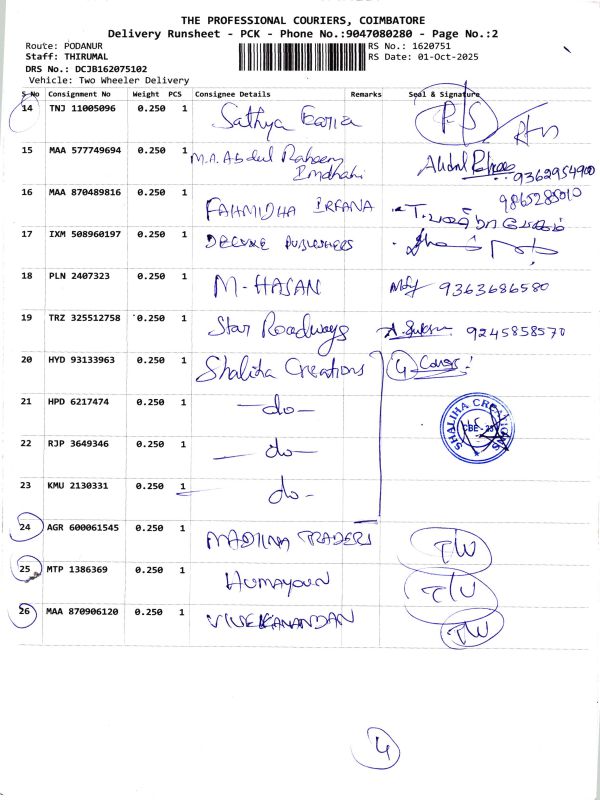 THE PROFESSIONAL COURIERS, COIMBATORE
Delivery Runsheet - PCK - Phone No.:9047080280 - Page No.:2
Route: PODANUR RS No.: 1620751
Staff: THIRUMAL RS Date: 01-Oct-2025
DRS No.: DCJB162075102
Vehicle: Two Wheeler Delivery
S No Consignment No Weight PCS Consignee Details Remarks Seal & Signature
14 TNJ 11005096 0.250 1 Sathya P/S
15 MAA 577749694 0.250 1 M.A. Abdul Raheem Abdul 9362954900
16 MAA 870489816 0.250 1 FAHMIDHA IRFANA 9865285010
17 IXM 508960197 0.250 1
18 PLN 2407323 0.250 1 M-HASAN 9363686580
19 TRZ 325512758 0.250 1 Star Roadways 9245858570
20 HYD 93133963 0.250 1 Shaliha Creations 4 Covers
21 HPD 6217474 0.250 1 -do-
SHALIHA CREATIONS
22 RJP 3649346 0.250 1 -do-
23 KMU 2130331 0.250 1 do-
24 AGR 600061545 0.250 1 MADINA TRADERS
25 MTP 1386369 0.250 1 HUMAYOUN
26 MAA 870906120 0.250 1 VIVEKANANDAN
4